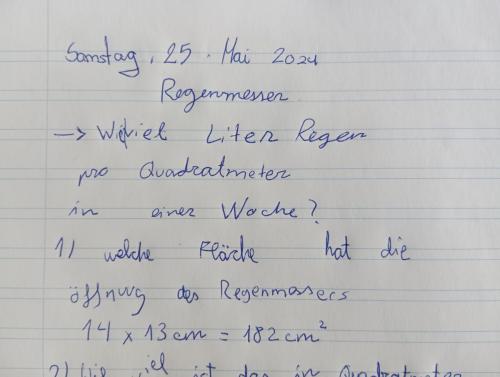 Samstag, 25. Mai 2024
Regenmesser
→ Wiviel Liter Regen
pro Quadratmeter
in einer Woche?
1) welche Fläche hat die
öffnung des Regenmessers
14 x 13 cm = 182 cm²
2) Wie viel ist das in Quadratmeter